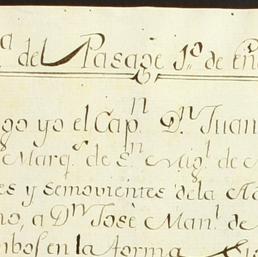 a del Pasage 1.º de en
go yo el Cap.n D.n Juan
Marq.s de S.n Mig.l de
es y semovientes dela
no, a D.n Josè Man.l de
ibos en la forma